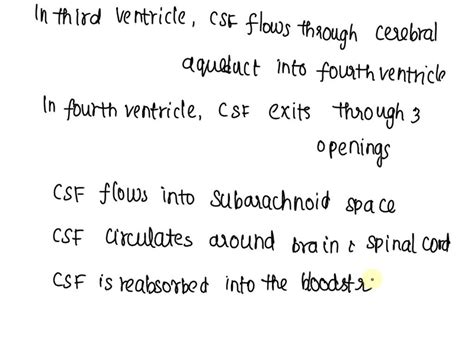 In third ventricle, CSF flows through cerebral
aqueduct into fourth ventricle
In fourth ventricle, CSF exits through 3
openings
CSF flows into subarachnoid space
CSF circulates around brain & spinal cord
CSF is reabsorbed into the bloodstr